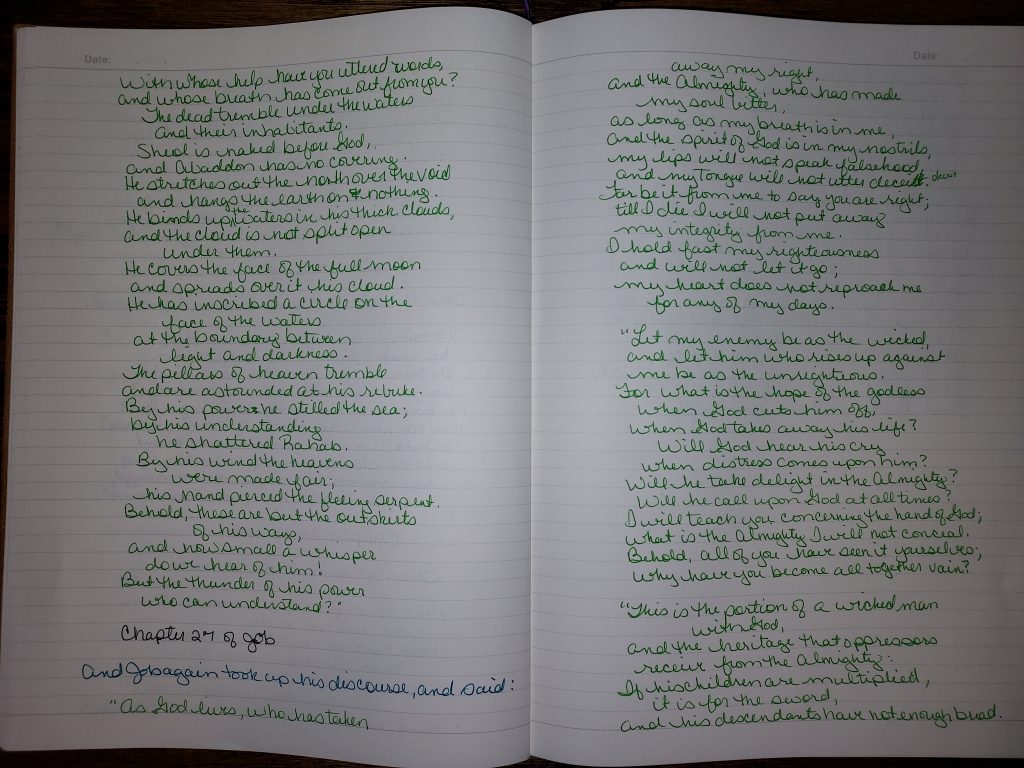 Date:
With whose help have you uttered words,
and whose breath has come out from you?
The dead tremble under the waters
and their inhabitants.
Sheol is naked before God,
and Abaddon has no covering.
He stretches out the north over the void
and hangs the earth on nothing.
He binds up the waters in his thick clouds,
and the cloud is not split open
under them.
He covers the face of the full moon
and spreads over it his cloud.
He has inscribed a circle on the
face of the waters
at the boundary between
light and darkness.
The pillars of heaven tremble
and are astounded at his rebuke.
By his power he stilled the sea;
by his understanding
he shattered Rahab.
By his wind the heavens
were made fair;
his hand pierced the fleeing serpent.
Behold, these are but the outskirts
of his ways,
and how small a whisper
do we hear of him!
But the thunder of his power
who can understand?"
Chapter 27 of Job
And Job again took up his discourse, and said:
"As God lives, who has taken
Date:
away my right,
and the Almighty, who has made
my soul bitter,
as long as my breath is in me,
and the spirit of God is in my nostrils,
my lips will not speak falsehood,
and my tongue will not utter deceit. deceit
Far be it from me to say you are right;
till I die I will not put away
my integrity from me.
I hold fast my righteousness
and will not let it go;
my heart does not reproach me
for any of my days.
"Let my enemy be as the wicked,
and let him who rises up against
me be as the unrighteous.
For what is the hope of the godless
when God cuts him off,
when God takes away his life?
Will God hear his cry
when distress comes upon him?
Will he take delight in the Almighty?
Will he call upon God at all times?
I will teach you concerning the hand of God;
what is the Almighty I will not conceal.
Behold, all of you have seen it yourselves;
why have you become all together vain?
"This is the portion of a wicked man
with God,
and the heritage that oppressors
receive from the Almighty:
If his children are multiplied,
it is for the sword,
and his descendants have not enough bread.